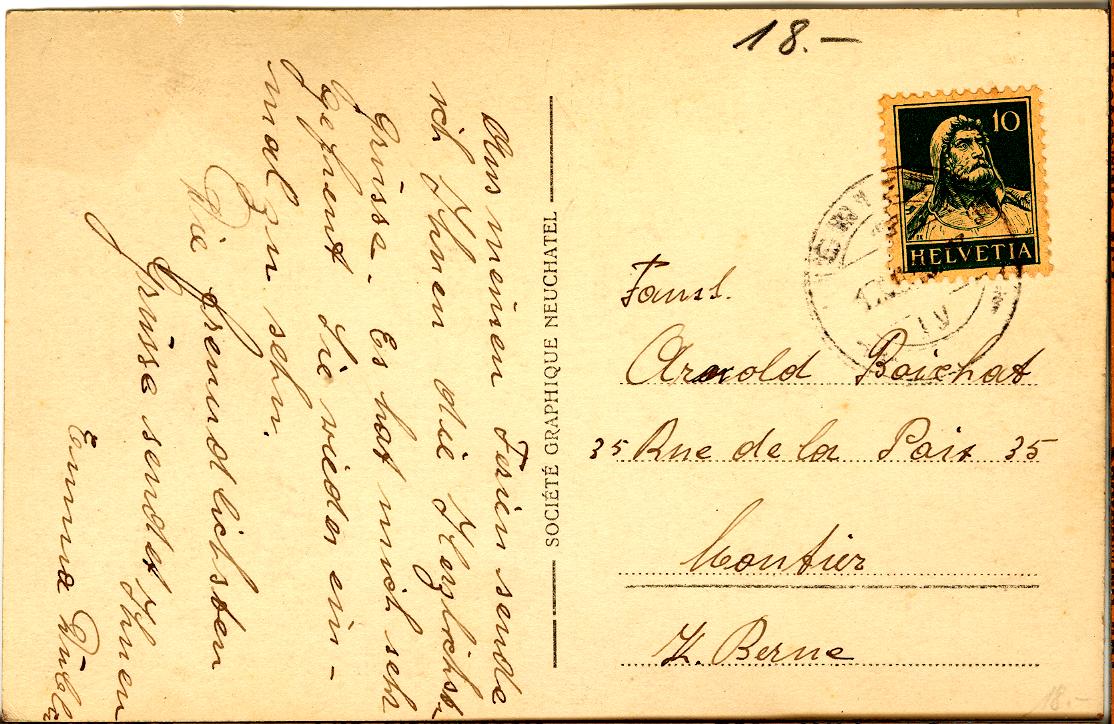 18.-
10
HELVETIA
IV
SOCIÉTÉ GRAPHIQUE NEUCHATEL
Aus meinen Ferien sende
ich Ihnen die Herzlichst-
Grüsse. Es hat mich sehr
gefreut Sie wieder ein-
mal zu sehn.
Die freundlichsten
Grüsse sendet Ihnen
Emma
Arnold Boichat
35 Rue de la Paix 35
Moutier
K. Berne
18.-